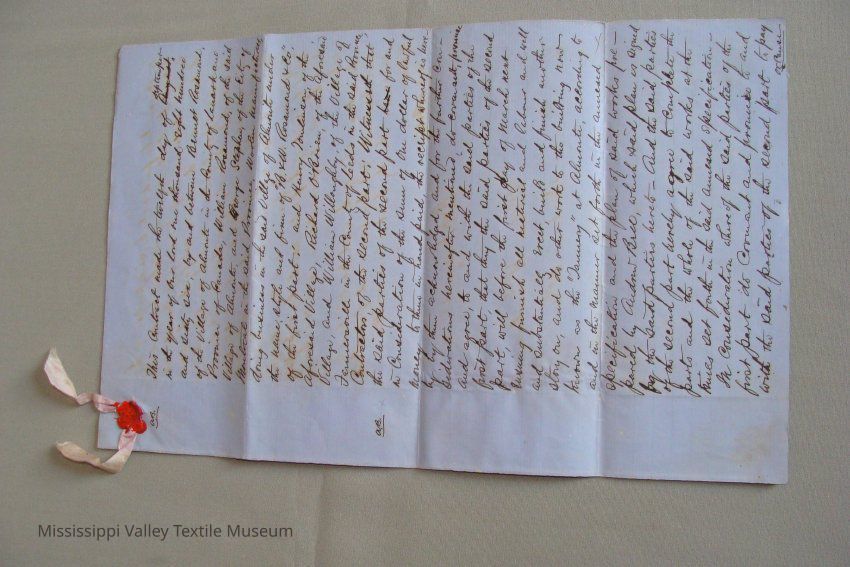 This Contract made the twelfth day of September
in the year of our Lord one thousand eight hundred
and sixty six, by and between Bennett Rosamond,
of the Village of Almonte in the County of Lanark and
Province of Canada, William Rosamond, of the said
Village of Almonte, and George Stephen, of the City of
Montreal in the said Province, Woolen manufacturers
doing business in the said Village of Almonte under
the name style and firm of "B & W. Rosamond & Co"
of the first part and Henry of the
aforesaid Village, Richard of the aforesaid
Village, and William Willoughby of the Village of
in the County of Leeds in the said Province,
Contractors of the second part. Witnesseth that
the said parties of the second part for and
in Consideration of the sum of One dollar of lawful
money to them in hand paid the receipt whereof is here
by by them acknowledged, and for the further con-
siderations hereinafter mentioned, do covenant, promise
and agree, to and with the said parties of the
first part that they the said parties of the second
part, will before the first day of March next
ensuing furnish all material and labour and well
and substantially erect build and finish another
story on and the other set to the building now
known as the "Tannery" at Almonte, according to
and in the manner set forth in the annexed
specification and the plan of said works pre-
pared by Andrew Bell, which said plan is signed
by the said parties hereto - And the said parties
of the second part hereby agree to complete the
parts and the whole of the said works at the
times set forth in the said annexed specification -
In consideration whereof the said parties of the
first part do covenant and promise to and
with the said parties of the second part to pay
or cause
Mississippi Valley Textile Museum